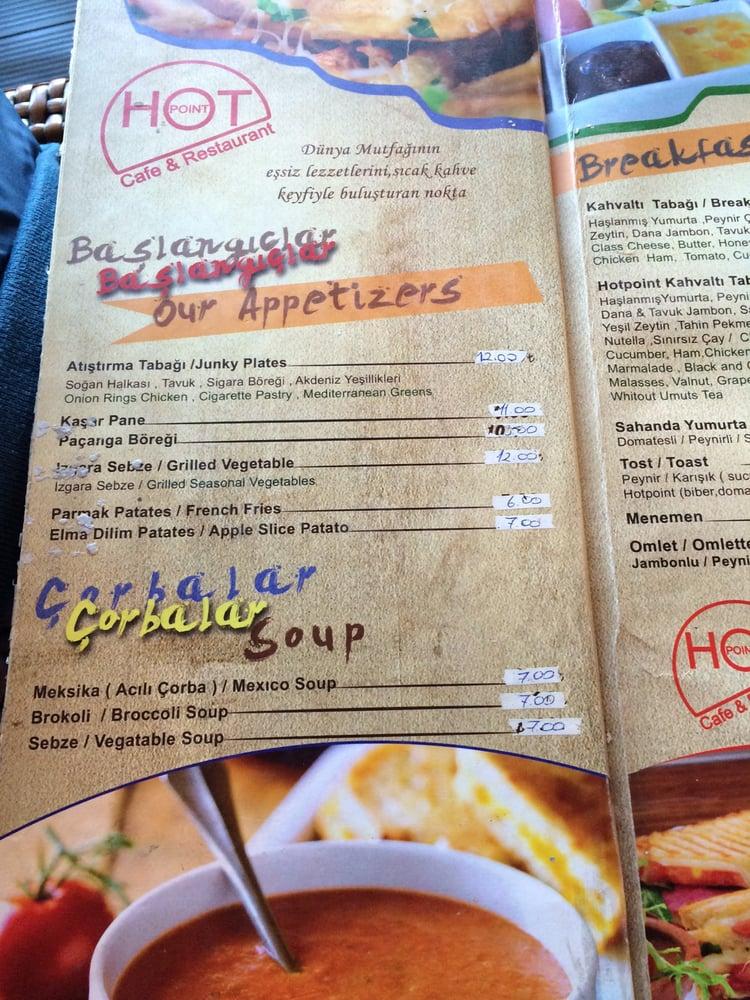 HOT
POINT
Cafe & Restaurant
Dünya Mutfağının
eşsiz lezzetlerini,sıcak kahve
keyfiyle buluşturan nokta
Başlangıçlar
Başlangıçlar
Our Appetizers
Atıştırma Tabağı /Junky Plates 12.00 ₺
Soğan Halkası , Tavuk , Sigara Böreği , Akdeniz Yeşillikleri
Onion Rings Chicken , Cigarette Pastry , Mediterranean Greens
Kaşar Pane 11.00
Paçanga Böreği 10.00
Izgara Sebze / Grilled Vegetable 12.00
Izgara Sebze / Grilled Seasonal Vegetables
Parmak Patates / French Fries 6.00
Elma Dilim Patates / Apple Slice Patato 7.00
Çorbalar
Çorbalar
Soup
Meksika ( Acılı Çorba ) / Mexıco Soup 7.00
Brokoli / Broccoli Soup 7.00
Sebze / Vegatable Soup 7.00
Breakfas
Kahvaltı Tabağı / Break
Haşlanmış Yumurta ,Peynir Ç
Zeytin, Dana Jambon, Tavuk
Class Cheese, Butter, Hone
Chicken Ham, Tomato, Cu
Hotpoint Kahvaltı Tab
HaşlanmışYumurta, Peyni
Dana & Tavuk Jambon, Sa
Yeşil Zeytin ,Tahin Pekme
Nutella ,Sınırsız Çay / C
Cucumber, Ham,Chicken
Marmalade , Black and G
Malasses, Valnut, Grape
Whitout Umuts Tea
Sahanda Yumurta
Domatesli / Peynirli / S
Tost / Toast
Peynir / Karışık ( suc
Hotpoint (biber,doma
Menemen
Omlet / Omlette
Jambonlu / Peyni
HO
POIN
Cafe &